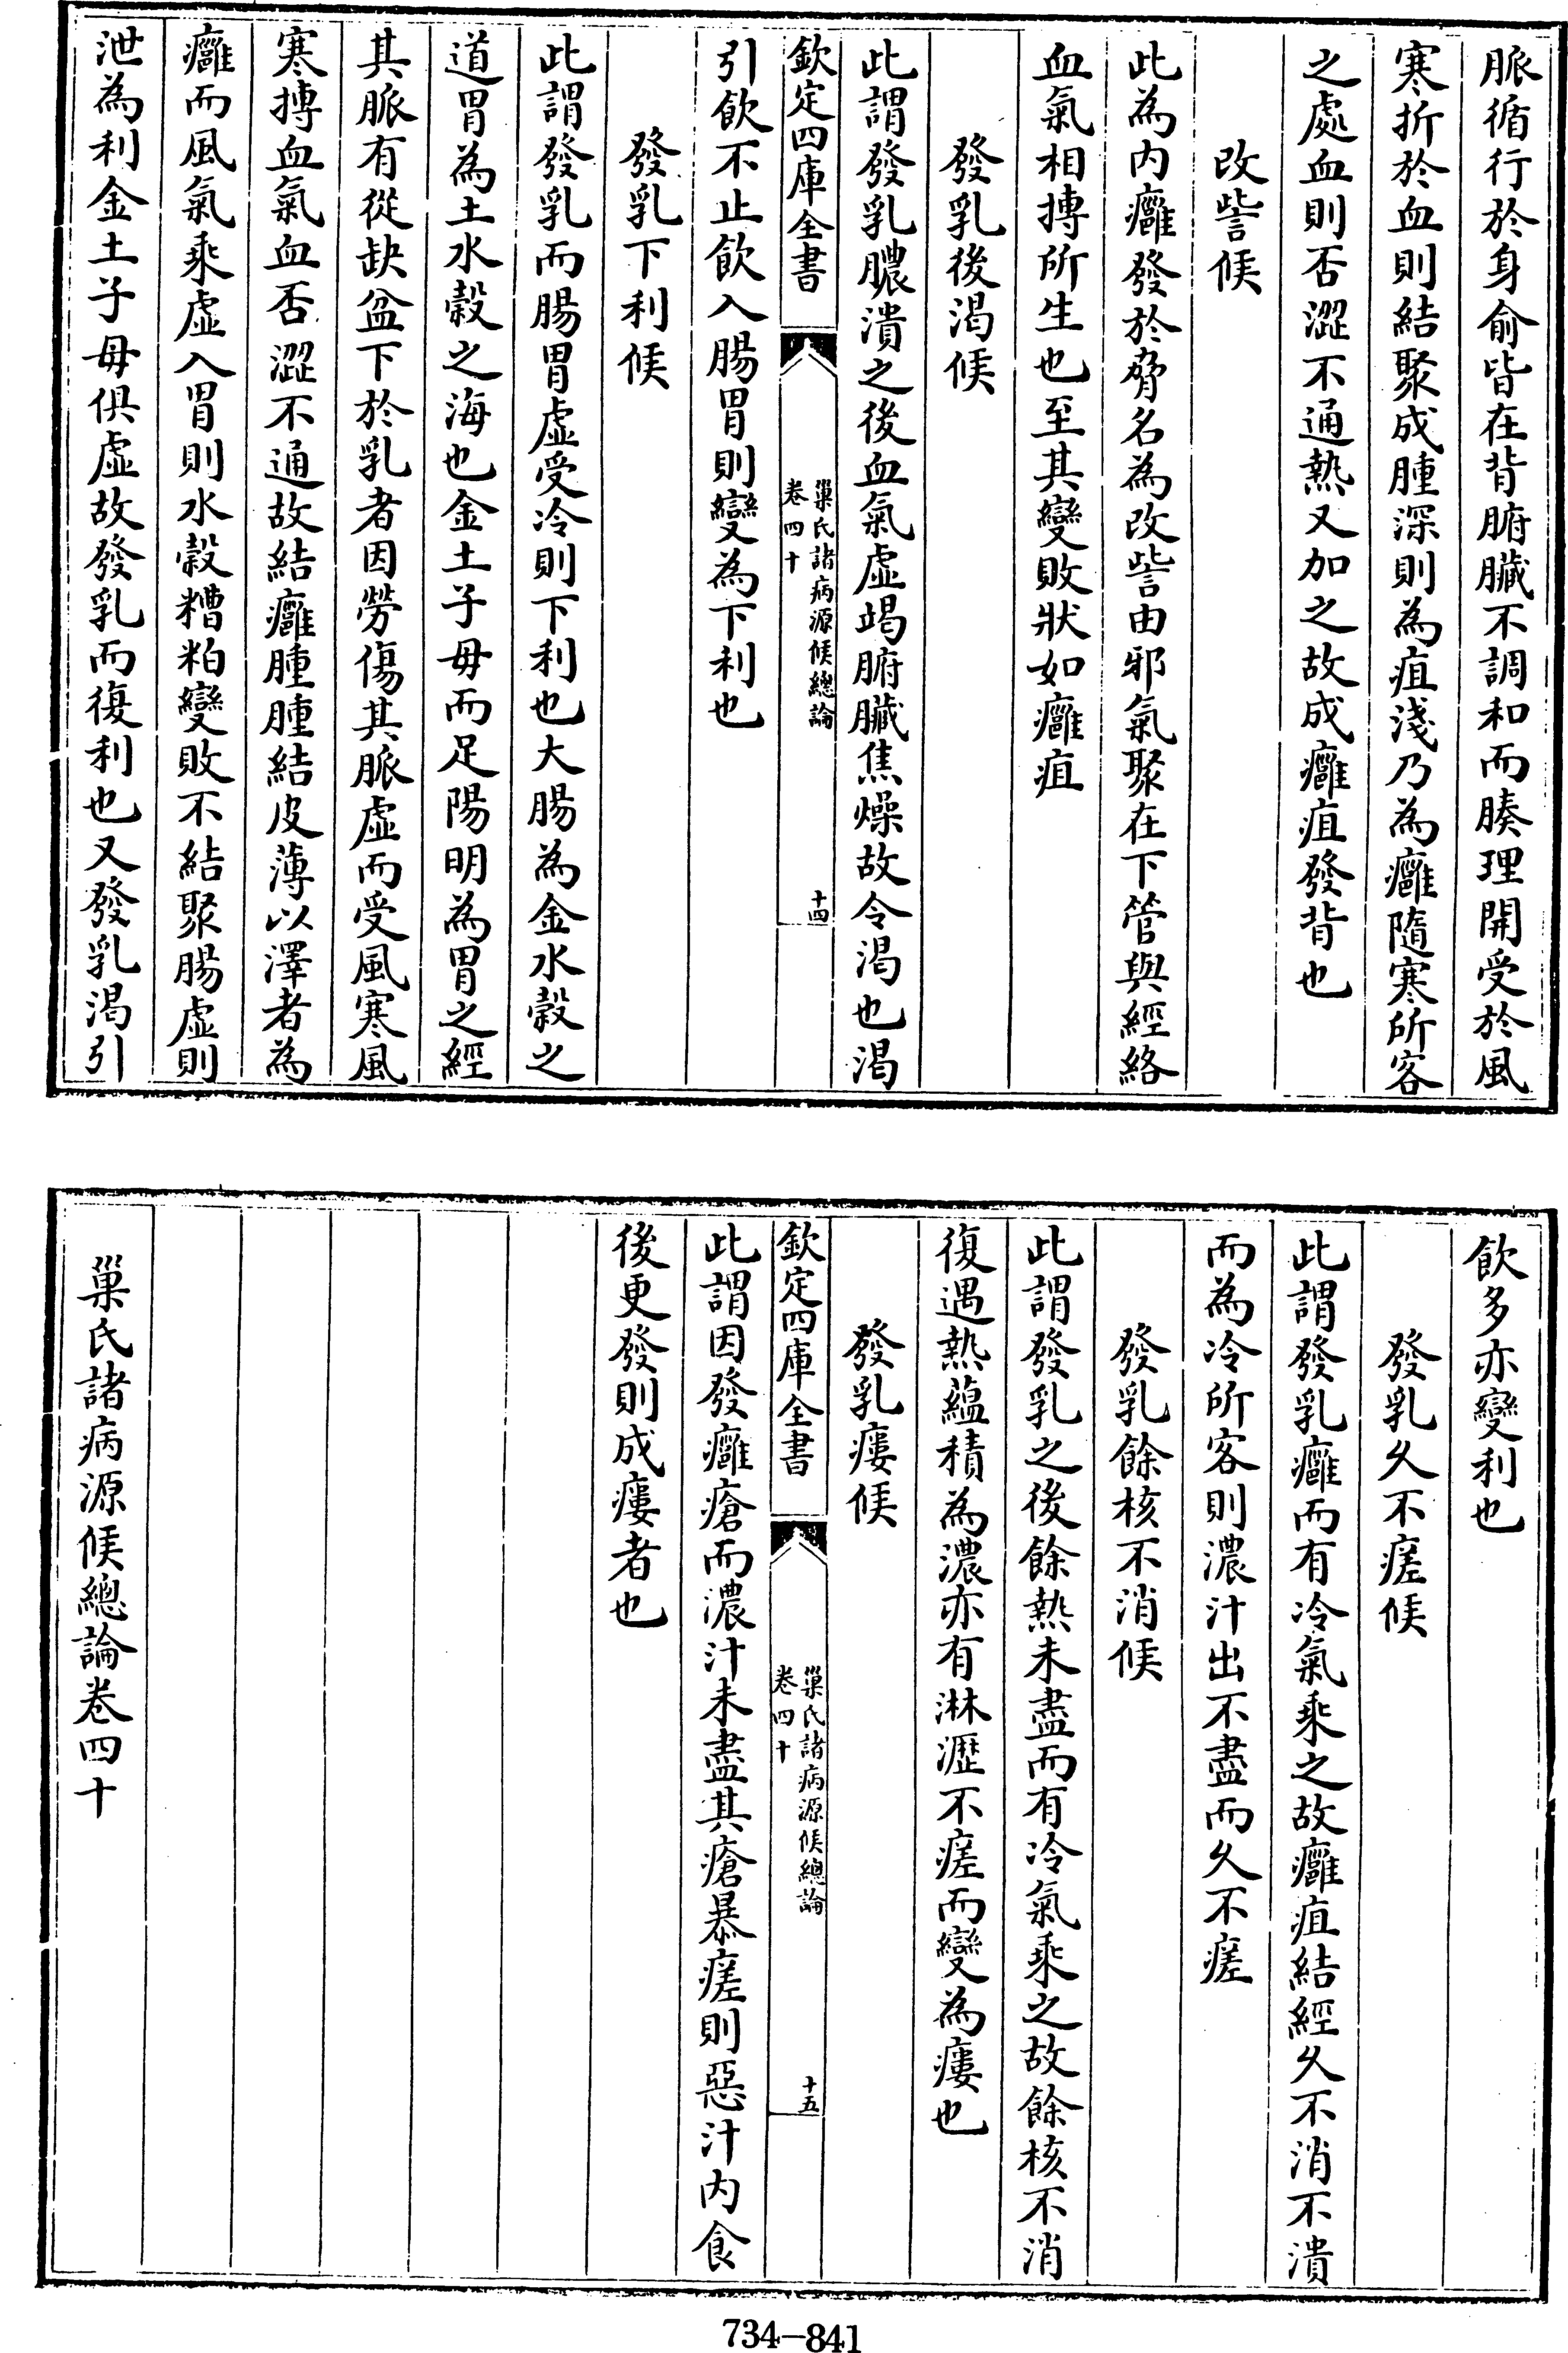 脈循行於身俞皆在背腑臟不調和而腠理開受於風
寒折於血則結聚成腫深則為疽淺乃為癰隨寒所客
之處血則否澀不通熱又加之故成癰疽發背也
改訾候
此為内癰發於脅名為改訾由邪氣聚在下管與經絡
血氣相摶所生也至其變敗狀如癰疽
發乳後渴候
此謂發乳膿潰之後血氣虛竭腑臟焦燥故令渴也渴
欽定四庫全書
巢氏諸病源候總論
卷四十
十四
引飲不止飲入腸胃則變為下利也
發乳下利候
此謂發乳而腸胃虛受冷則下利也大腸為金水榖之
道胃為土水榖之海也金土子母而足陽明為胃之經
其脈有從缺盆下於乳者因勞傷其脈虛而受風寒風
寒摶血氣血否澀不通故結癰腫腫結皮薄以澤者為
癰而風氣乘虛入胃則水榖糟粕變敗不結聚腸虛則
泄為利金土子母俱虛故發乳而復利也又發乳渴引
飲多亦變利也
發乳久不瘥候
此謂發乳癰而有冷氣乘之故癰疽結經久不消不潰
而為冷所客則濃汁出不盡而久不瘥
發乳餘核不消候
此謂發乳之後餘熱未盡而有冷氣乘之故餘核不消
復遇熱蘊積為濃亦有淋瀝不瘥而變為瘻也
發乳瘻候
欽定四庫全書
巢氏諸病源候總論
卷四十
十五
此謂因發癰瘡而濃汁未盡其瘡暴瘥則惡汁内食
後更發則成瘻者也
巢氏諸病源候總論卷四十
734-841